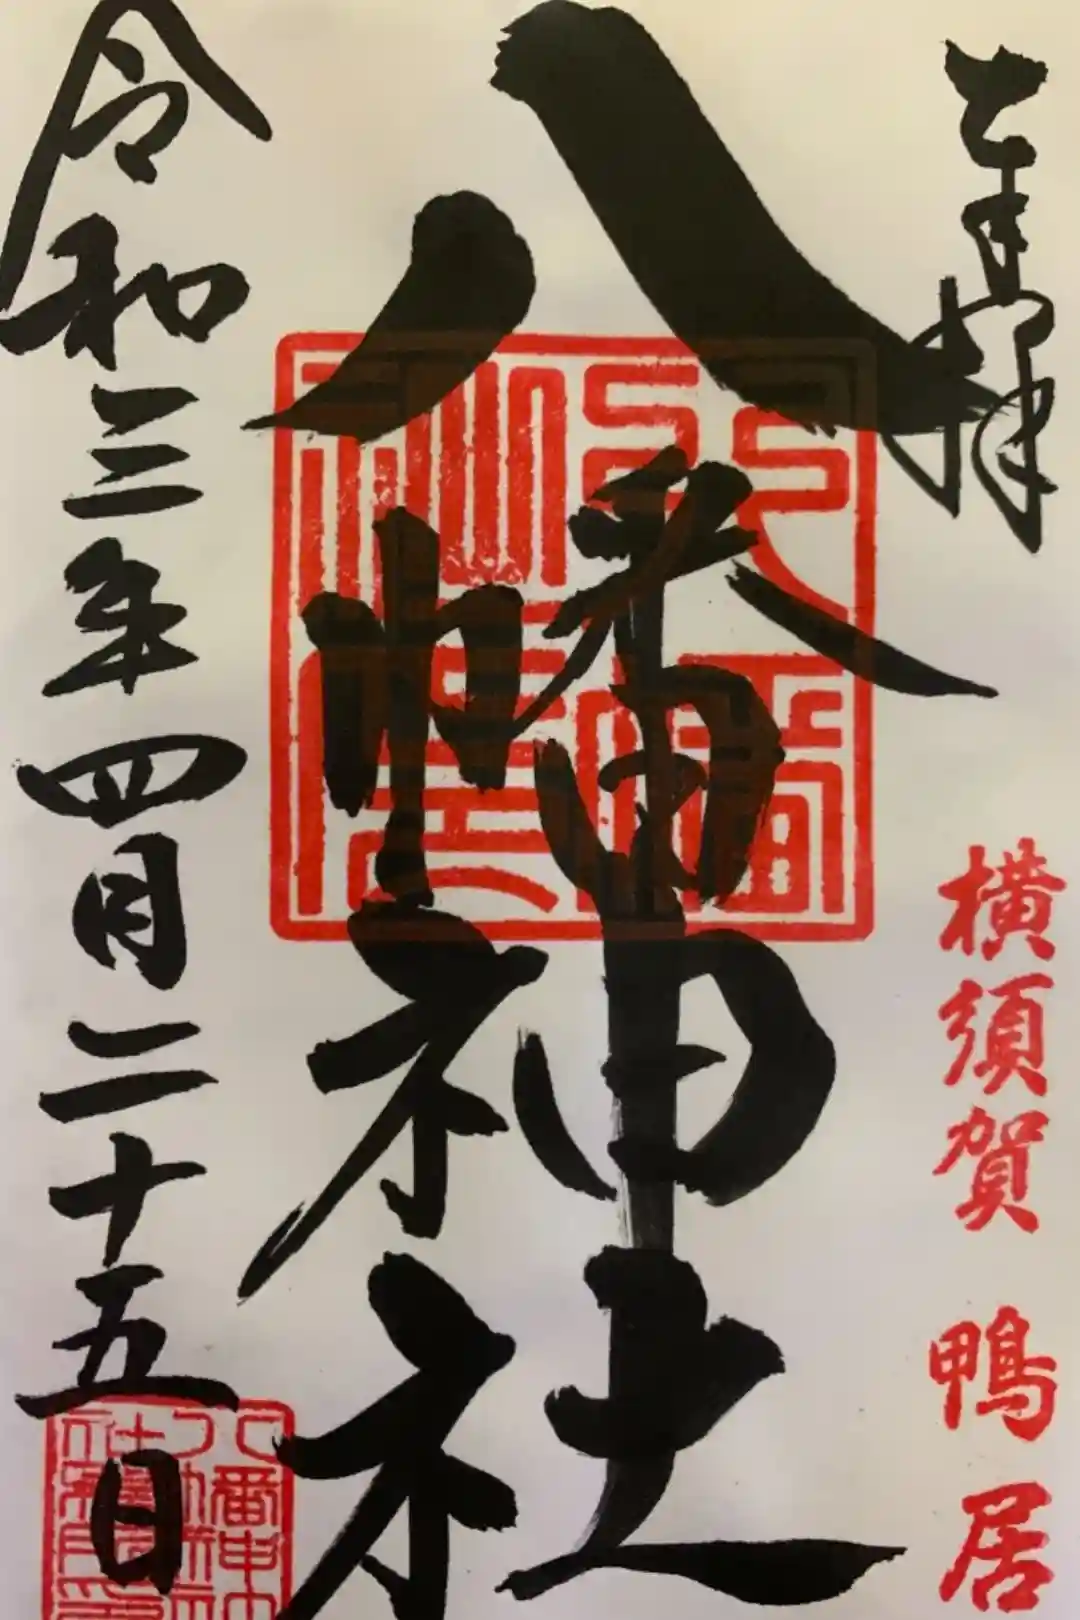 奉拝
横須賀 鴨居
八幡神社
令和三年四月二十五日